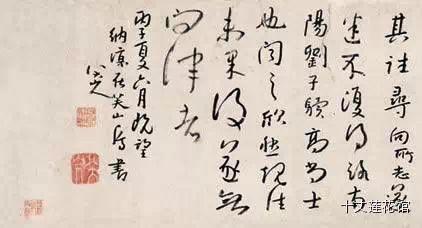 其往尋向所志遂
迷不復得路南
陽劉子驥高尚士
也聞之欣然規往
未果後遂無
問津者
丙子夏六月既望
納涼在芙山房書
八大山人
十又莲花馆